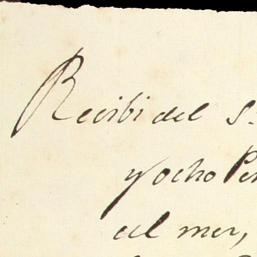 Recibi del S.
y ocho Pe
del mes,